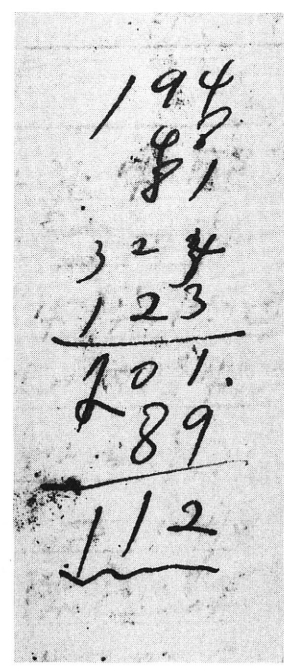 194
81
324
123
201.
89
112